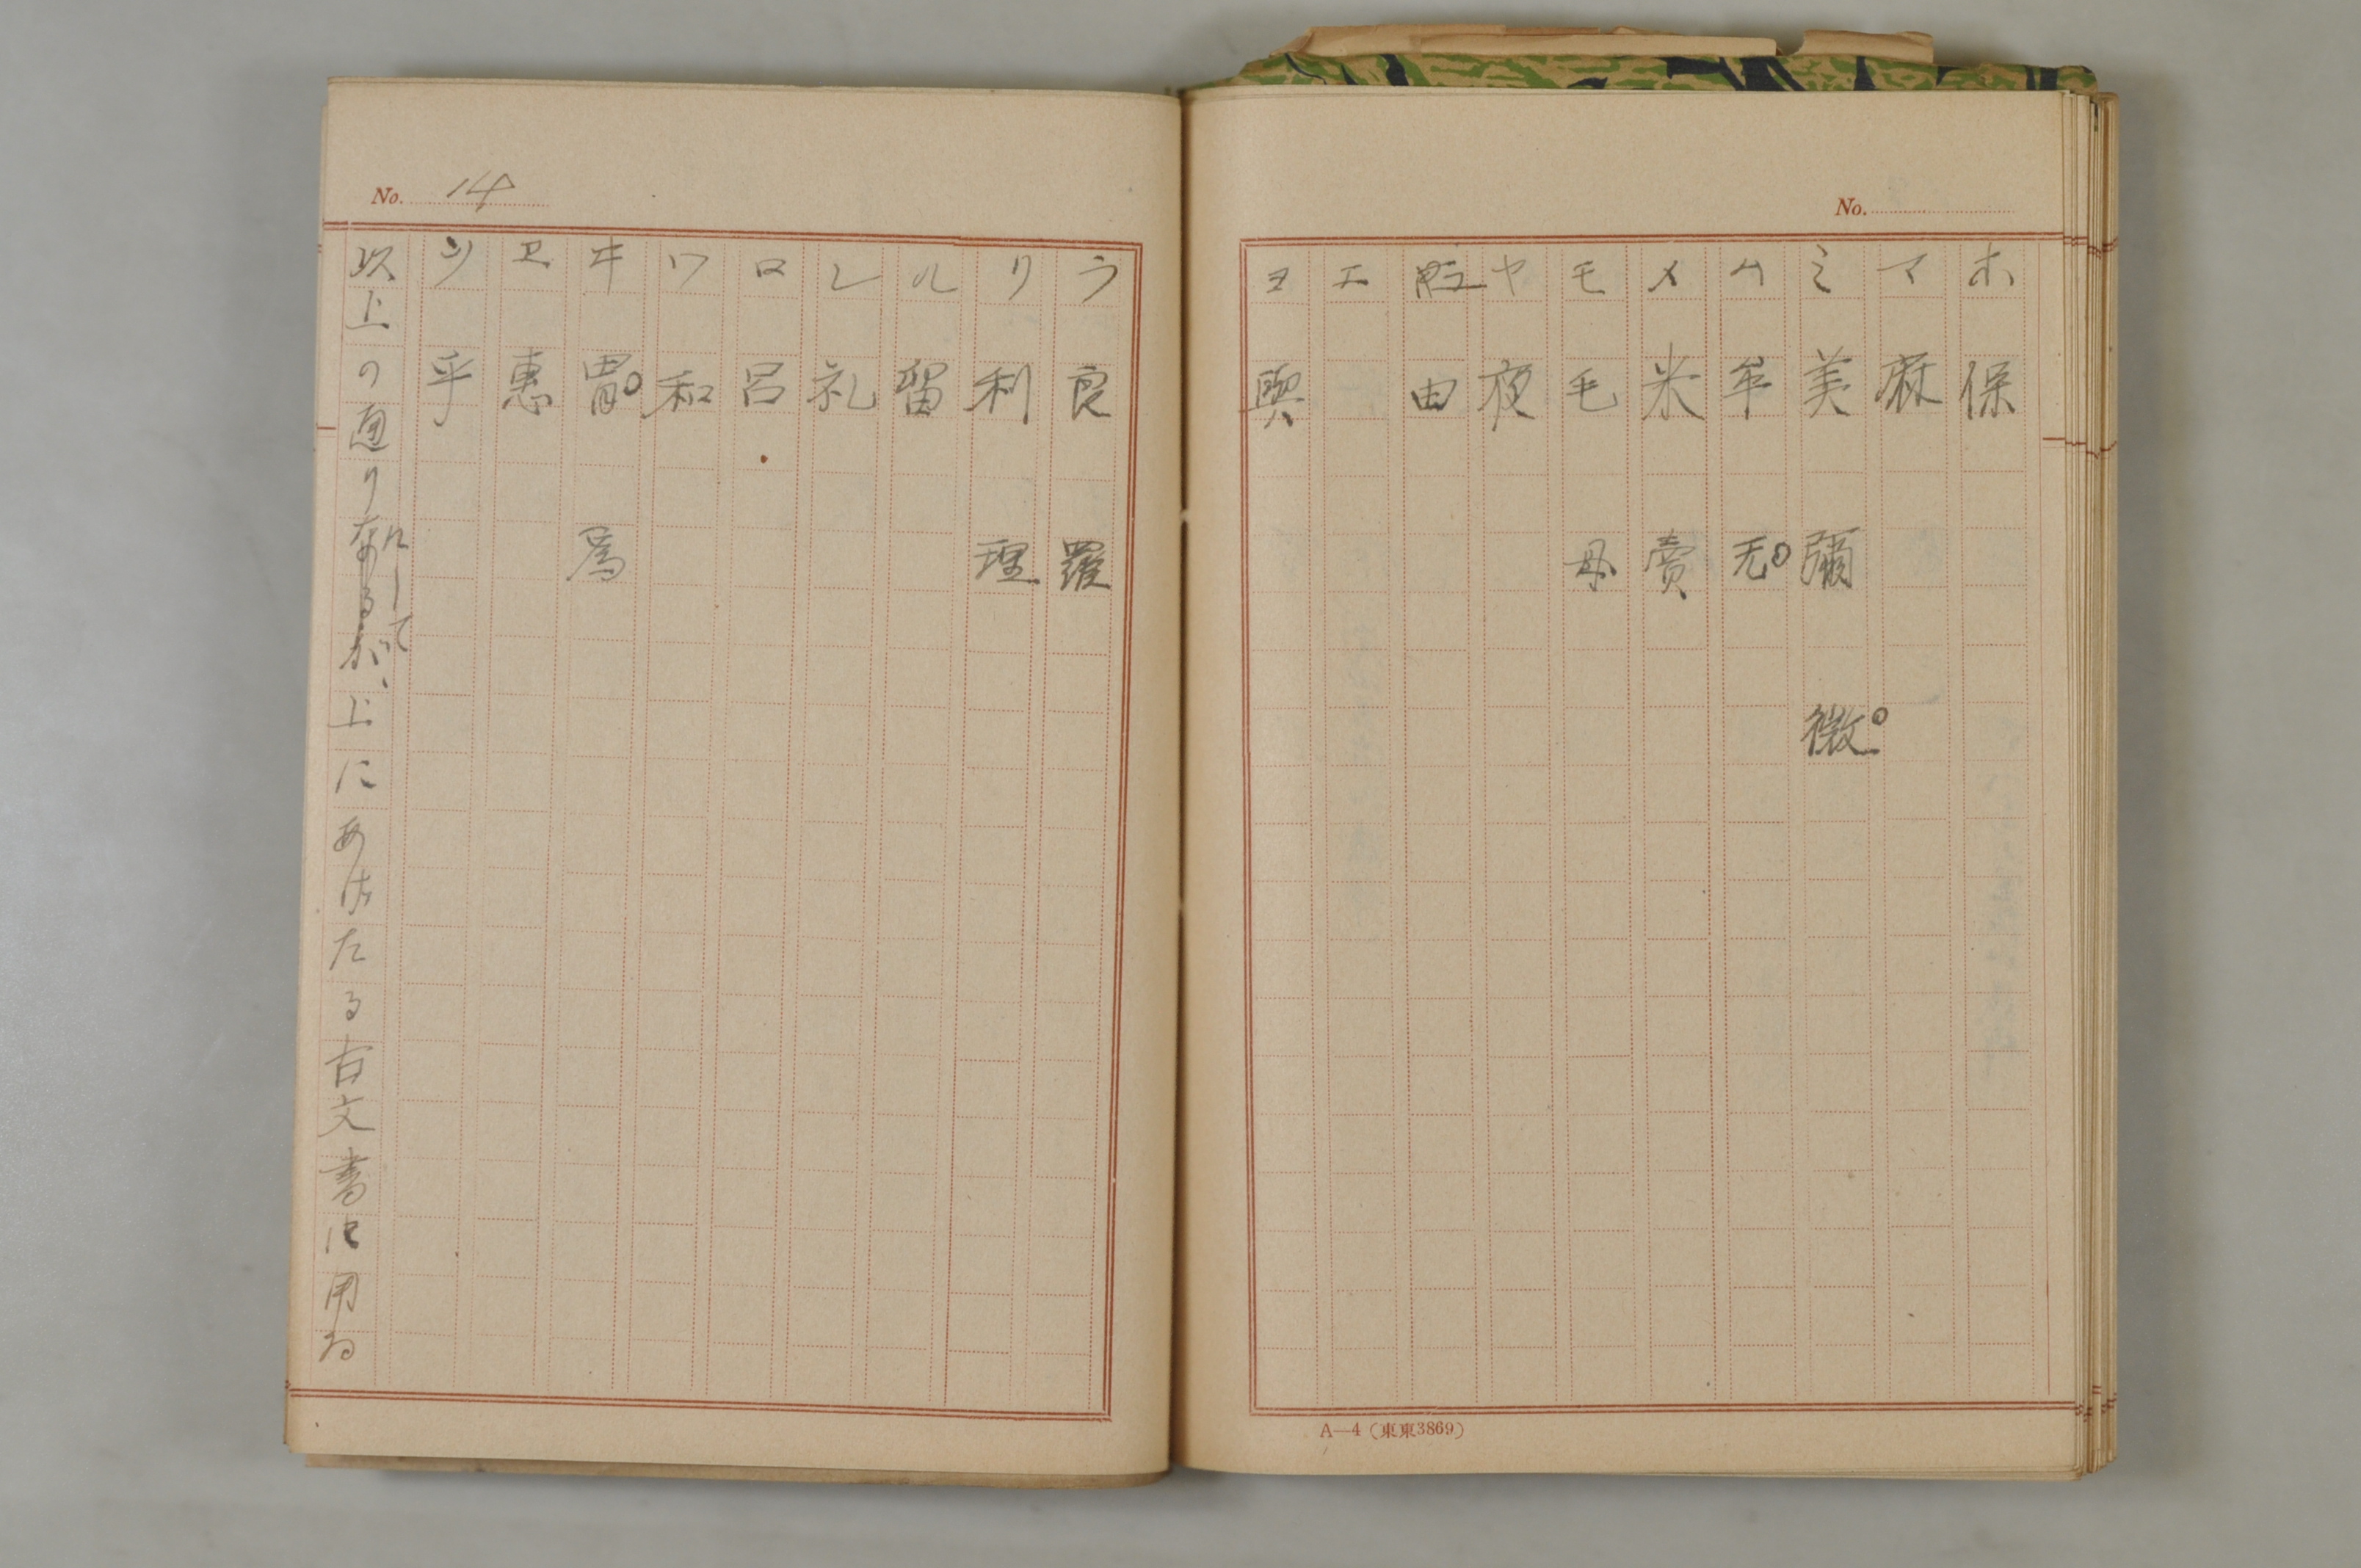 No.
ホ 保
マ 麻
ミ 美 彌 微
ム 牟 无
メ 米 賣
モ 毛 母
ヤ 夜
ユ 由
エ
ヨ 與
A—4(東東3869)
No. 14
ラ 良 羅
リ 利 理
ル 留
レ 礼
ロ 呂
ワ 和
ヰ 胃 爲
ヱ 惠
乎
以上の通りにして、上にあげたる古文書に用ゐ